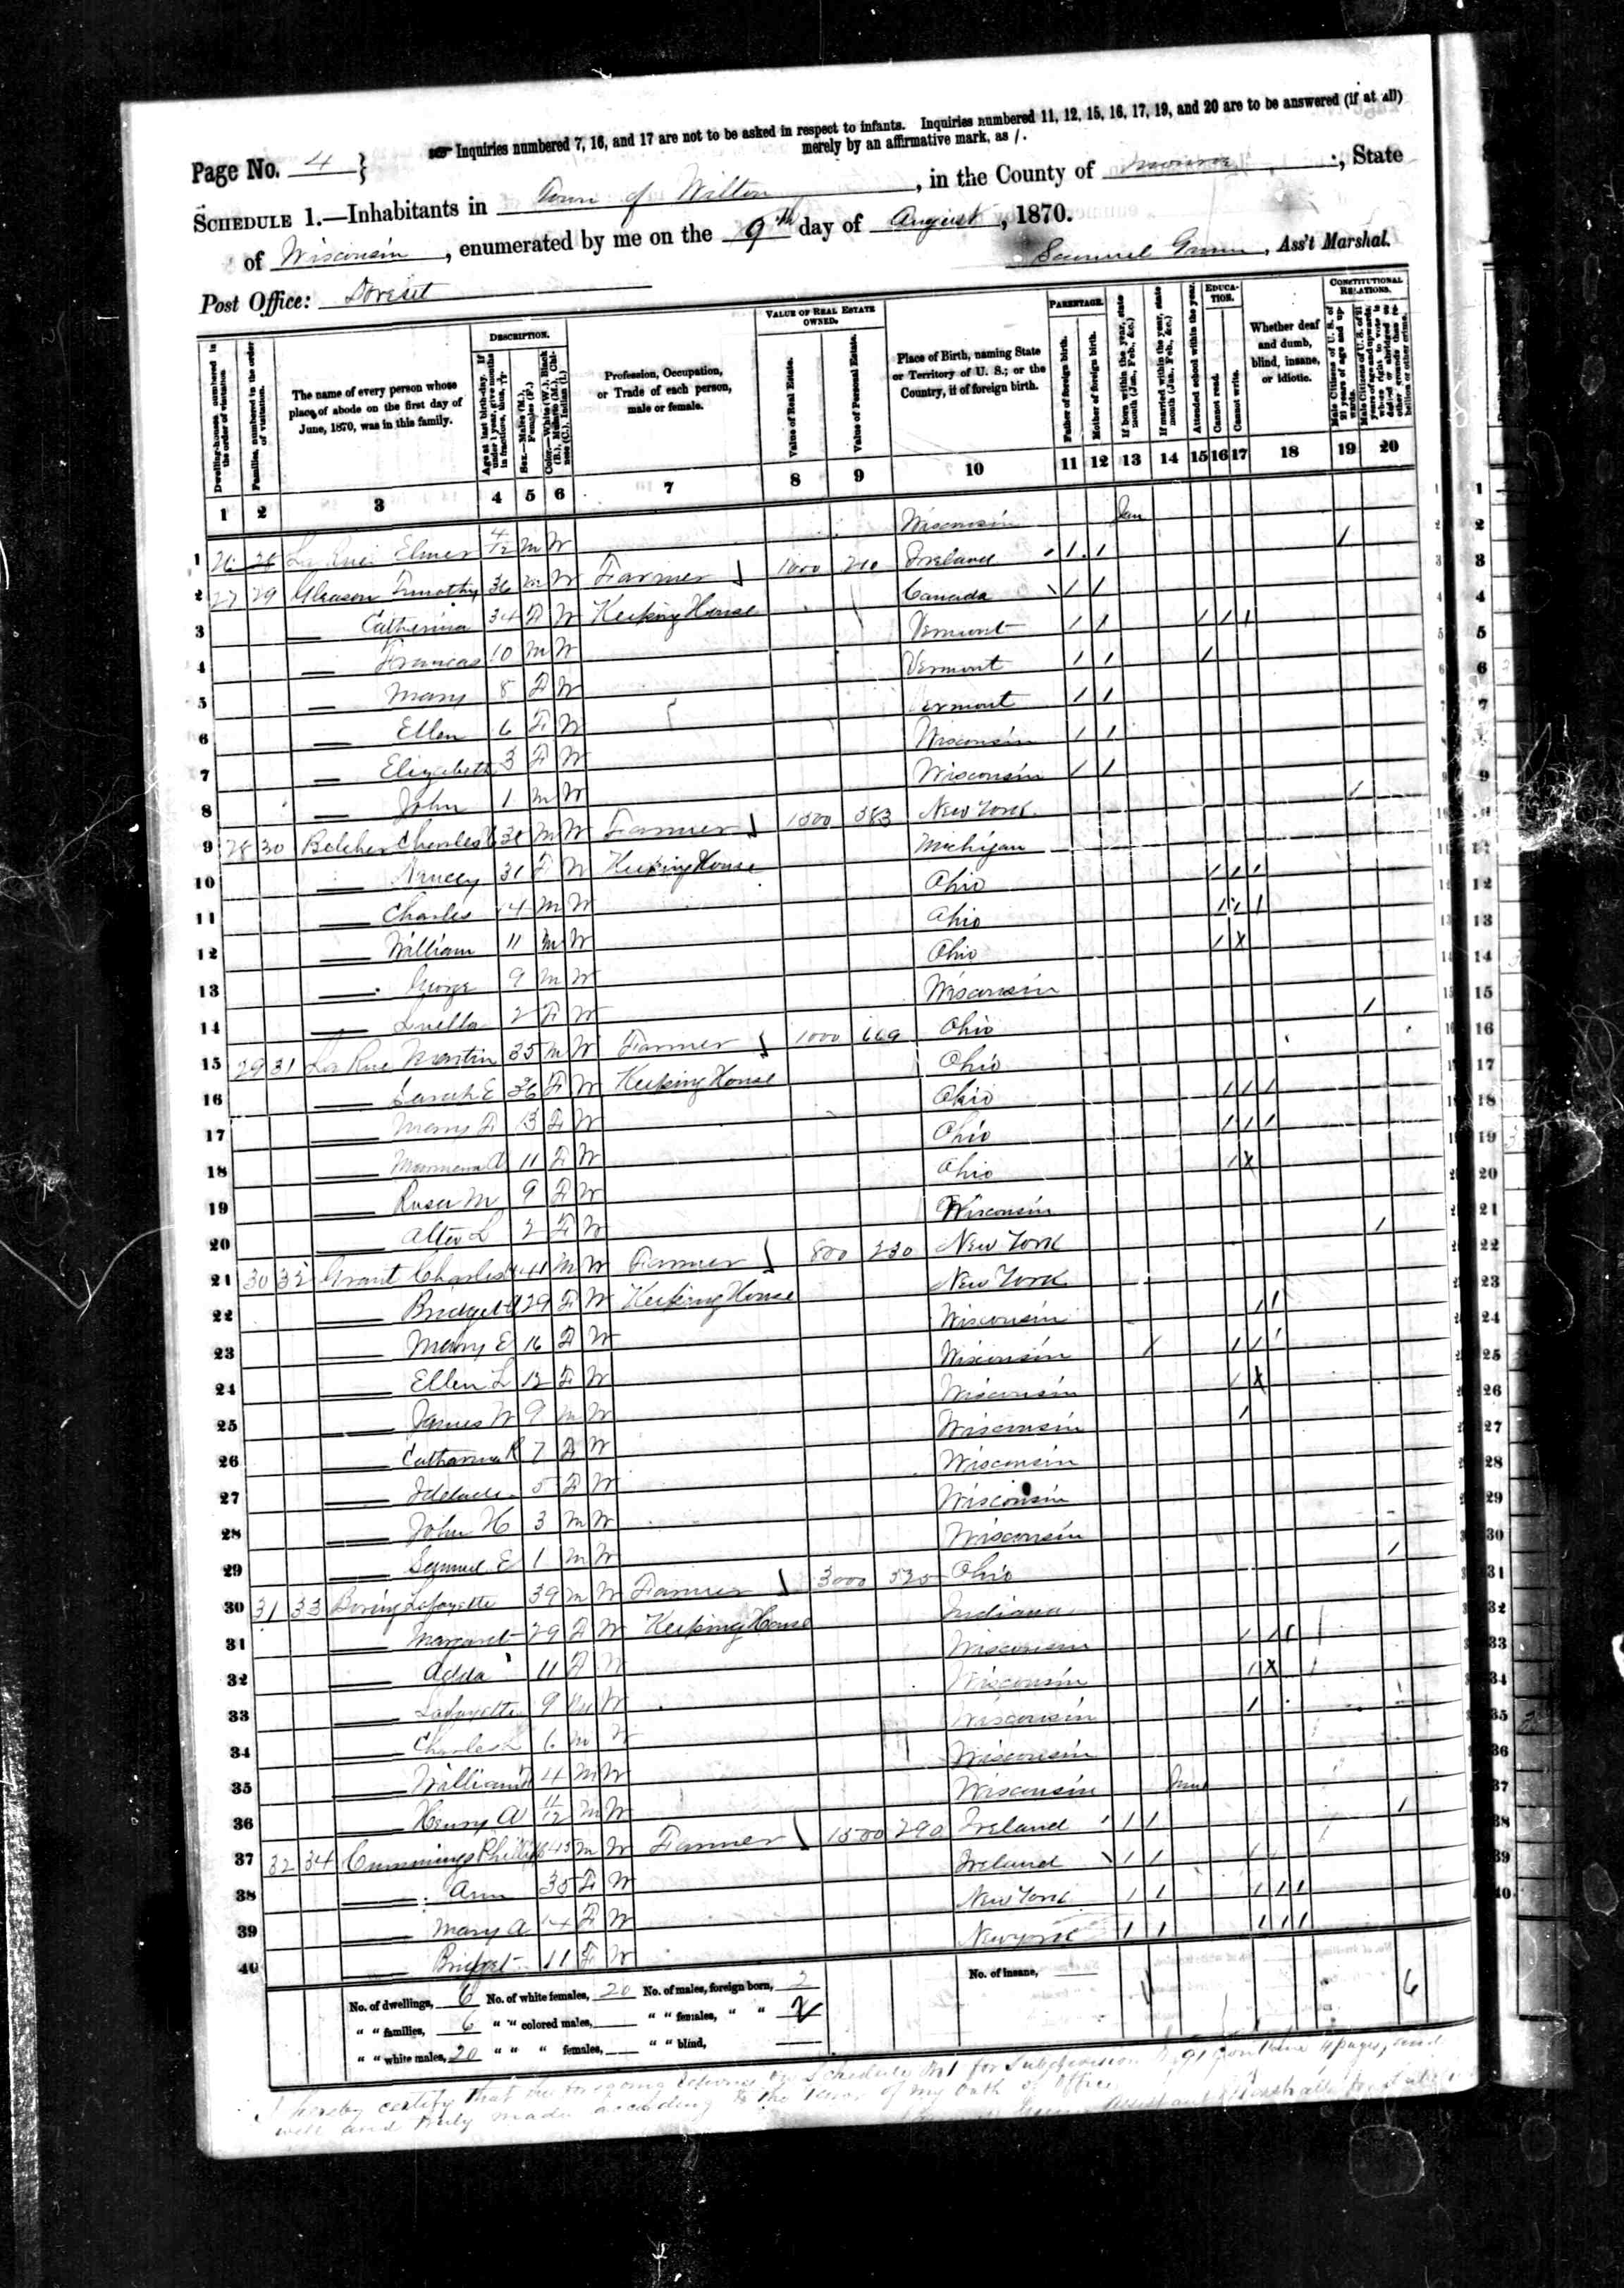 Inquiries numbered 7, 16, and 17 are not to be asked in respect to infants. Inquiries numbered 11, 12, 15, 16, 17, 19, and 20 are to be answered (if at all) merely by an affirmative mark, as /.
Page No. 4 }
SCHEDULE 1.—Inhabitants in Town of Wilton, in the County of Monroe, State
of Wisconsin, enumerated by me on the 9th day of August, 1870.
Post Office: Dorset Samuel, Ass't Marshal.
Dwelling-houses, numbered in the order of visitation.
Families, numbered in the order of visitation.
The name of every person whose place of abode on the first day of June, 1870, was in this family.
DESCRIPTION.
Age at last birth-day. If under 1 year, give months in fractions, thus, 3/12
Sex.—Males (M.), Females (F.)
Color.—White (W.), Black (B.), Mulatto (M.), Chinese (C.), Indian (I.)
Profession, Occupation, or Trade of each person, male or female.
VALUE OF REAL ESTATE OWNED.
Value of Real Estate.
Value of Personal Estate.
Place of Birth, naming State or Territory of U. S.; or the Country, if of foreign birth.
PARENTAGE.
Father of foreign birth.
Mother of foreign birth.
If born within the year, state month (Jan., Feb., &c.)
If married within the year, state month (Jan., Feb., &c.)
Attended school within the year.
EDUCATION.
Cannot read.
Cannot write.
Whether deaf and dumb, blind, insane, or idiotic.
CONSTITUTIONAL RELATIONS.
Male Citizens of U. S. of 21 years of age and upwards.
Male Citizens of U. S. of 21 years of age and upwards, whose right to vote is denied or abridged on other grounds than rebellion or other crime.
1 2 3 4 5 6 7 8 9 10 11 12 13 14 15 16 17 18 19 20
1 26 28 La Rue Elmer 4/12 M W Wisconsin Jan
2 27 29 Gleason Timothy 36 M W Farmer 1000 210 Ireland / / /
3 — Catherina 34 F W Keeping House Canada / /
4 — Francas 10 M W Vermont / / / / /
5 — Mary 8 F W Vermont / / /
6 — Ellen 6 F W Vermont / /
7 — Elizabeth 3 F W Wisconsin / /
8 — John 1 M W Wisconsin / /
9 28 30 Belcher Charles 38 M W Farmer 1500 383 New York /
10 — Nancy 31 F W Keeping House Michigan
11 — Charles 14 M W Ohio / / /
12 — William 11 M W Ohio / / /
13 — George 9 M W Ohio / X
14 — Luella 2 F W Wisconsin
15 29 31 La Rue Martin 35 M W Farmer 1000 669 Ohio /
16 — Sarah E 36 F W Keeping House Ohio
17 — Mary F 13 F W Ohio / / /
18 — 11 F W Ohio / / /
19 — Rosa M 9 F W Ohio / X
20 — L 2 F W Wisconsin
21 30 32 Grant Charles 41 M W Farmer 800 230 New York /
22 — Bridget 29 F W Keeping House New York
23 — Mary E 16 F W Wisconsin / /
24 — Ellen L 12 F W Wisconsin / / / /
25 — James W 9 M W Wisconsin / X
26 — Catharina R 7 F W Wisconsin /
27 — Adelade 5 F W Wisconsin
28 — John H 3 M W Wisconsin
29 — Samuel E 1 M W Wisconsin
30 31 33 Boring Lafayette 39 M W Farmer 3000 525 Ohio /
31 — Margaret 29 F W Keeping House Indiana
32 — Adda 11 F W Wisconsin / / /
33 — Lafayette 9 M W Wisconsin / X
34 — Charles L 6 M W Wisconsin /
35 — William 4 M W Wisconsin
36 — Henry A 11/12 M W Wisconsin June
37 32 34 Cummings Phillip 45 M W Farmer 1500 290 Ireland / / /
38 — Ann 35 F W Ireland / / / /
39 — Mary A 14 F W New York / / / / /
40 — Bridget 11 F W New york / / / / /
No. of dwellings, 6 No. of white females, 20 No. of males, foreign born, 2 No. of insane,
" " families, 6 " " colored males, " " females, " " 2 6
" " white males, 20 " " " females, " " blind,
I hereby certify that the foregoing returns on Schedule No 1 for Subdivision No 91 contains 4 pages, and
well and truly made according to the tenor of my oath of office